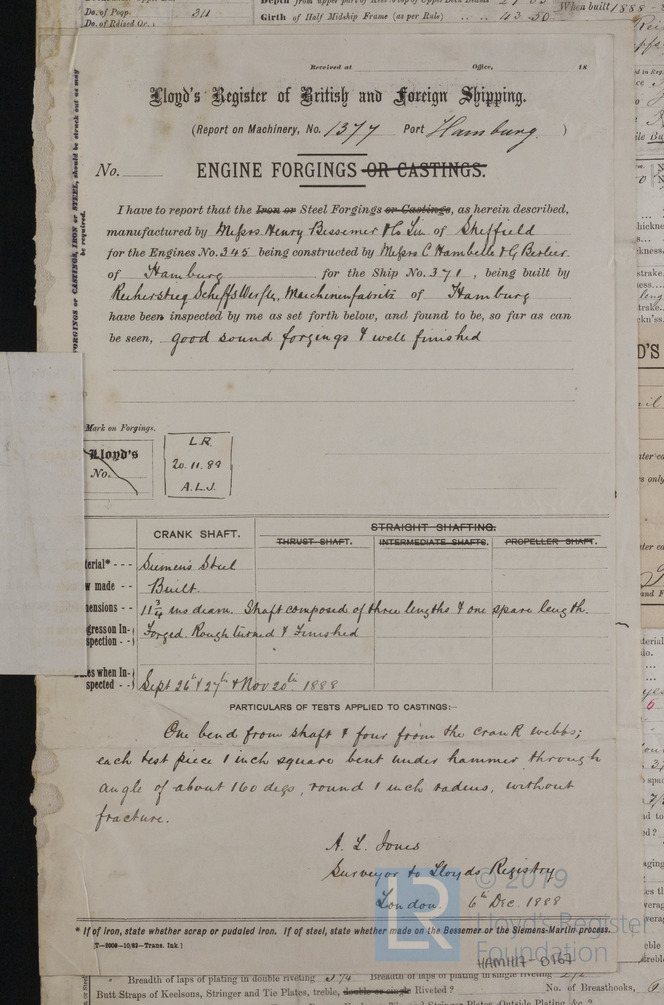 Do. of Poop 34
Do. of Raised Qr.
Girth of Half Midship Frame (as per Rule) 43.50
When built 1888
Received at Office, 18
Lloyd's Register of British and Foreign Shipping.
(Report on Machinery, No. 1377 Port Hamburg. )
No. ENGINE FORGINGS OR CASTINGS.
FORGINGS or CASTINGS, IRON or STEEL, should be struck out as may be required.
I have to report that the Iron or Steel Forgings or Castings, as herein described,
manufactured by Messrs Henry Bessemer & Co Lim of Sheffield
for the Engines No. 345 being constructed by Messrs C &
of Hamburg for the Ship No. 371, being built by
of Hamburg
have been inspected by me as set forth below, and found to be, so far as can
be seen, good sound forgings & well finished
Mark on Forgings.
Lloyd's
No.
L.R.
20.11.88
A.L.J.
STRAIGHT SHAFTING.
CRANK SHAFT. THRUST SHAFT. INTERMEDIATE SHAFTS. PROPELLER SHAFT.
terial* - - - Siemens Steel
w made - - Built.
ensions - - 11 3/4 ins diam. Shaft composed of three lengths & one spare length.
gress on In-
spection - - Forged. Rough turned & Finished
es when In-
spected - - Sept 26th & 27th & Nov 20th 1888
PARTICULARS OF TESTS APPLIED TO CASTINGS:-
One bend from shaft & four from the crank webbs;
each test piece 1 inch square bent under hammer through
angle of about 160 degs, round 1 inch radius, without
fracture.
A. L. Jones
Surveyor to Lloyds Registry
London. 6th Dec. 1888
© 2019
LR
Lloyd's Register
Foundation
* If of iron, state whether scrap or pudaled iron. If of steel, state whether made on the Bessemer or the Siemens-Martin process.
[T—2009—10/82—Trans. Ink.]
HAM1117-0167
Breadth of laps of plating in double riveting 5 3/4 Breadth of laps of plating in single riveting 2 1/2
Butt Straps of Keelsons, Stringer and Tie Plates, treble, double or single Riveted? No. of Breasthooks,